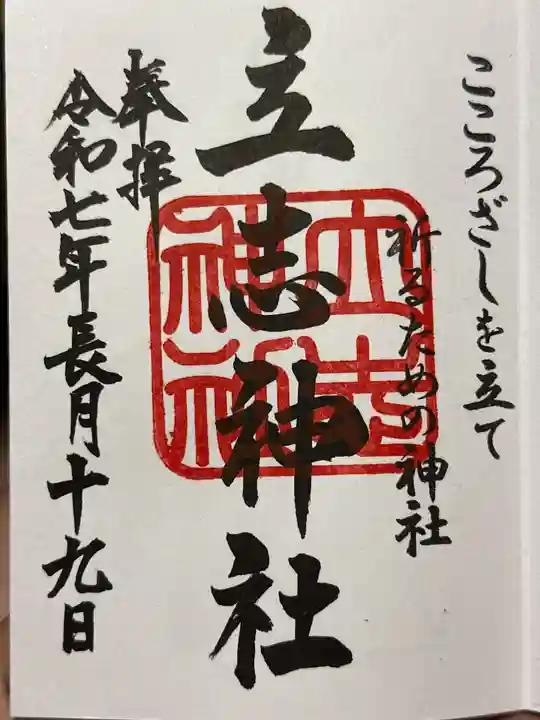 こころざしを立て
祈るための神社
立志神社
立志神社
奉拝
令和七年長月十九日